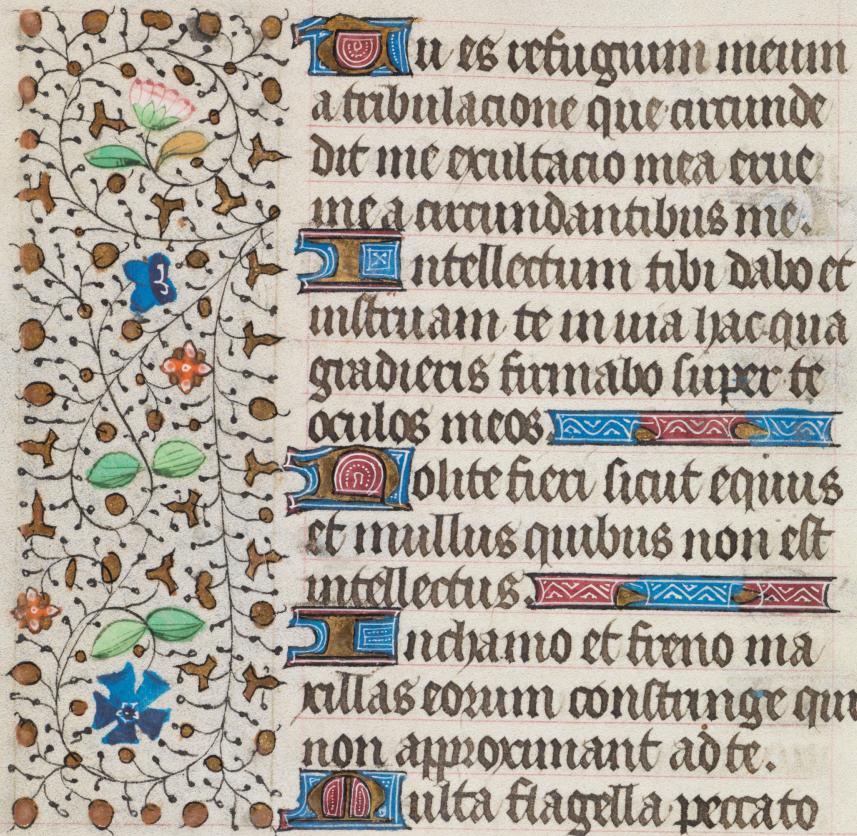 Tu es refugium meum
a tribulacione que circunde
dit me exultacio mea erue
me a circundantibus me.
Intellectum tibi dabo et
instruam te in uia hac qua
gradieris firmabo super te
oculos meos.
Nolite fieri sicut equus
et mullus quibus non est
intellectus.
In chamo et freno ma
xillas eorum constringe qui
non approximant ad te.
Multa flagella peccato